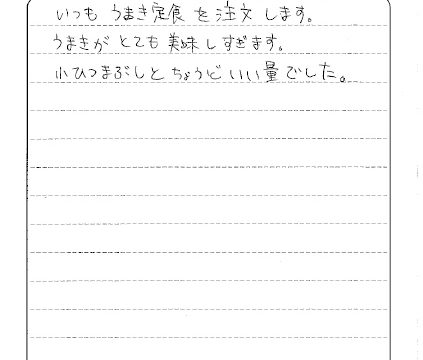 いつも うまき定食 を 注文 します。
うまきが とても 美味しすぎます。
小ひつまぶしと ちょうど いい量でした。